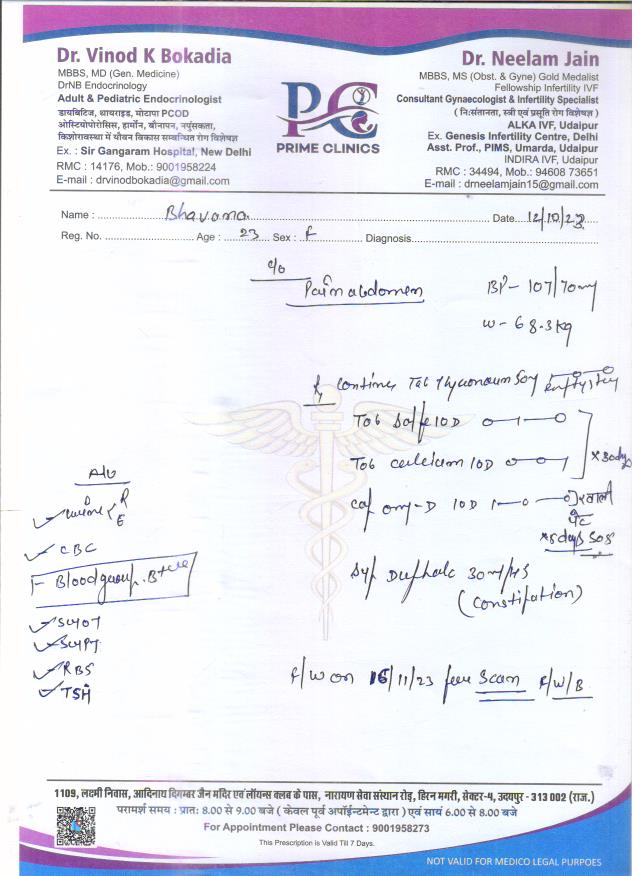 Dr. Vinod K Bokadia
MBBS, MD (Gen. Medicine)
DrNB Endocrinology
Adult & Pediatric Endocrinologist
डायबिटिज, थायराइड, मोटापा PCOD
ओस्टियोपोरोसिस, हार्मोन, बौनापन, नपुंसकता,
किशोरावस्था में यौवन विकास सम्बन्धित रोग विशेषज्ञ
Ex. : Sir Gangaram Hospital, New Delhi
RMC : 14176, Mob.: 9001958224
E-mail : drvinodbokadia@gmail.com
PC
PRIME CLINICS
Dr. Neelam Jain
MBBS, MS (Obst. & Gyne) Gold Medalist
Fellowship Infertility IVF
Consultant Gynaecologist & Infertility Specialist
( नि:संतानता, स्त्री एवं प्रसूति रोग विशेषज्ञ )
ALKA IVF, Udaipur
Ex. Genesis Infertility Centre, Delhi
Asst. Prof., PIMS, Umarda, Udaipur
INDIRA IVF, Udaipur
RMC : 34494, Mob.: 94608 73651
E-mail : drneelamjain15@gmail.com
Name : Bhavana Date. 12/10/23
Reg. No. Age : 23 Sex : F Diagnosis
c/o
Pain abdomen
BP- 107/70
W- 68.3kg
Rx Continue Tab empty
Tab 10D 0-1-0
Tab calcium 10D 0-0-1
x 30days
cap omy-D 10D 1-0-0 खाली
पेट
x 5days SOS
Syp Duphalac 30ml/HS
(Constipation)
A/V
Urine R
E
CBC
Blood group. B+ve
SGOT
SGPT
RBS
TSH
F/W on 16/11/23 Scan F/W/B
1109, लक्ष्मी निवास, आदिनाथ दिगम्बर जैन मंदिर एवं लॉयन्स क्लब के पास, नारायण सेवा संस्थान रोड़, हिरन मगरी, सेक्टर-4, उदयपुर - 313 002 (राज.)
परामर्श समय : प्रातः 8.00 से 9.00 बजे ( केवल पूर्व अपॉईन्टमेन्ट द्वारा ) एवं सायं 6.00 से 8.00 बजे
For Appointment Please Contact : 9001958273
This Prescription is Valid Till 7 Days.
NOT VALID FOR MEDICO LEGAL PURPOES